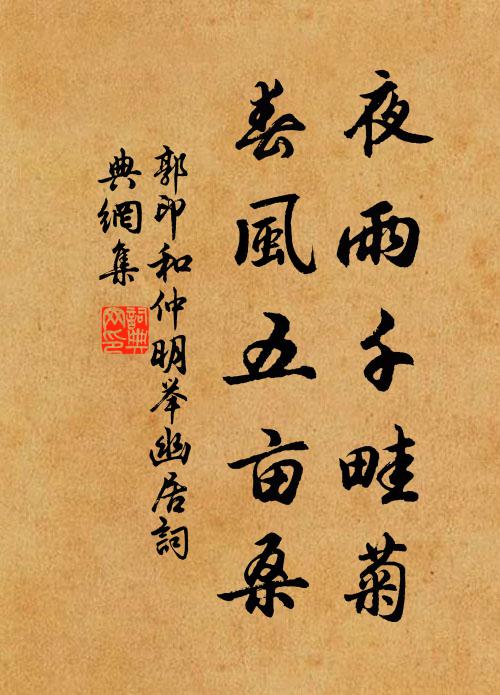 夜雨千畦菊
春風五亩桑
郭印和仲明举幽居詞
典網集
詞典网印